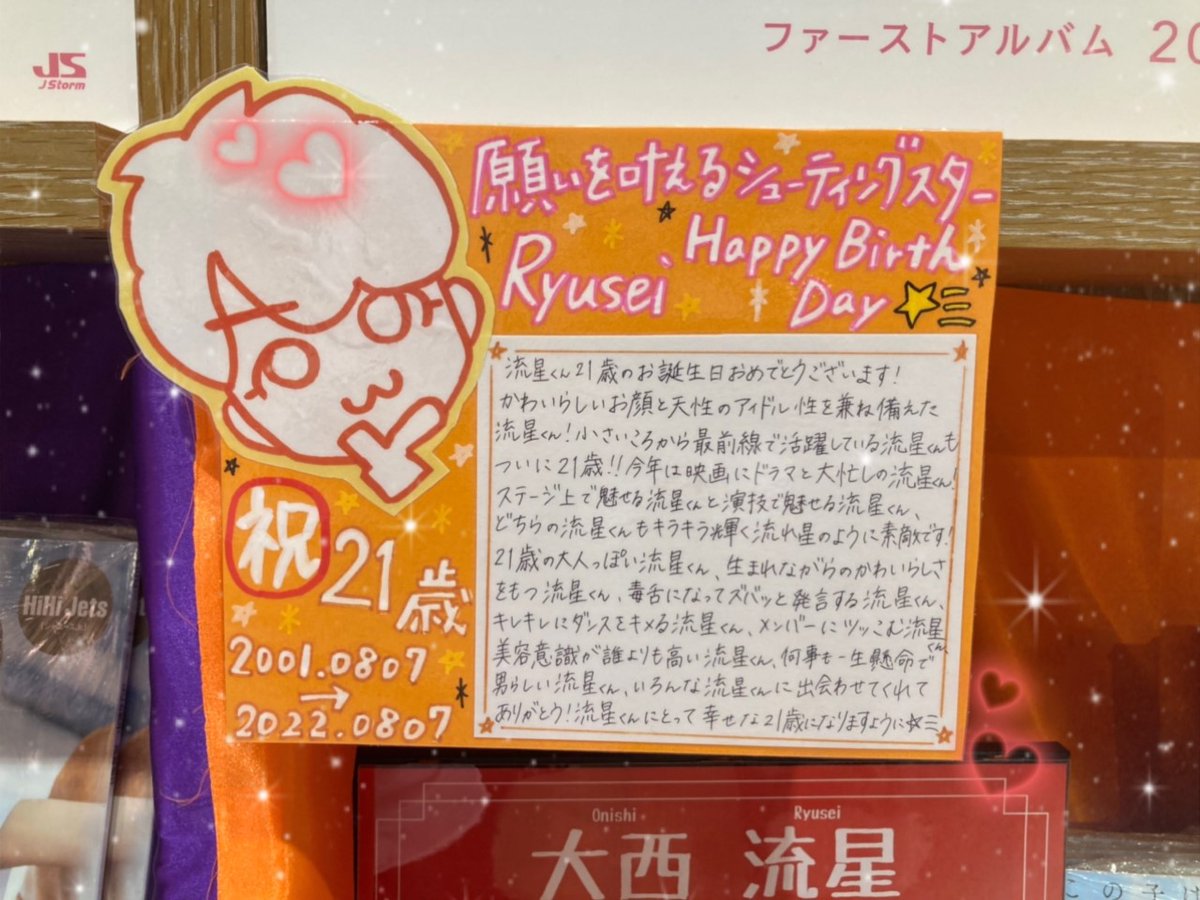 JS
J Storm
ファーストアルバム 20
願いを叶えるシューティングスター
Ryusei
Happy Birth
Day
流星くん21歳のお誕生日おめでとうございます！
かわいらしいお顔と天性のアイドル性を兼ね備えた
流星くん！小さいころから最前線で活躍している流星くんも
ついに21歳!!今年は映画にドラマと大忙しの流星くん！
ステージ上で魅せる流星くんと演技で魅せる流星くん、
どちらの流星くんもキラキラ輝く流れ星のように素敵です！
21歳の大人っぽい流星くん、生まれながらのかわいらしさ
をもつ流星くん、毒舌になってズバッと発言する流星くん、
キレキレにダンスをキメる流星くん、メンバーにツッこむ流星くん、
美容意識が誰よりも高い流星くん、何事も一生懸命で
男らしい流星くん、いろんな流星くんに出会わせてくれて
ありがとう！流星くんにとって幸せな21歳になりますように☆三
祝
21歳
2001.0807
→
2022.0807
HiHi Jets
Onishi Ryusei
大西 流星
この子は